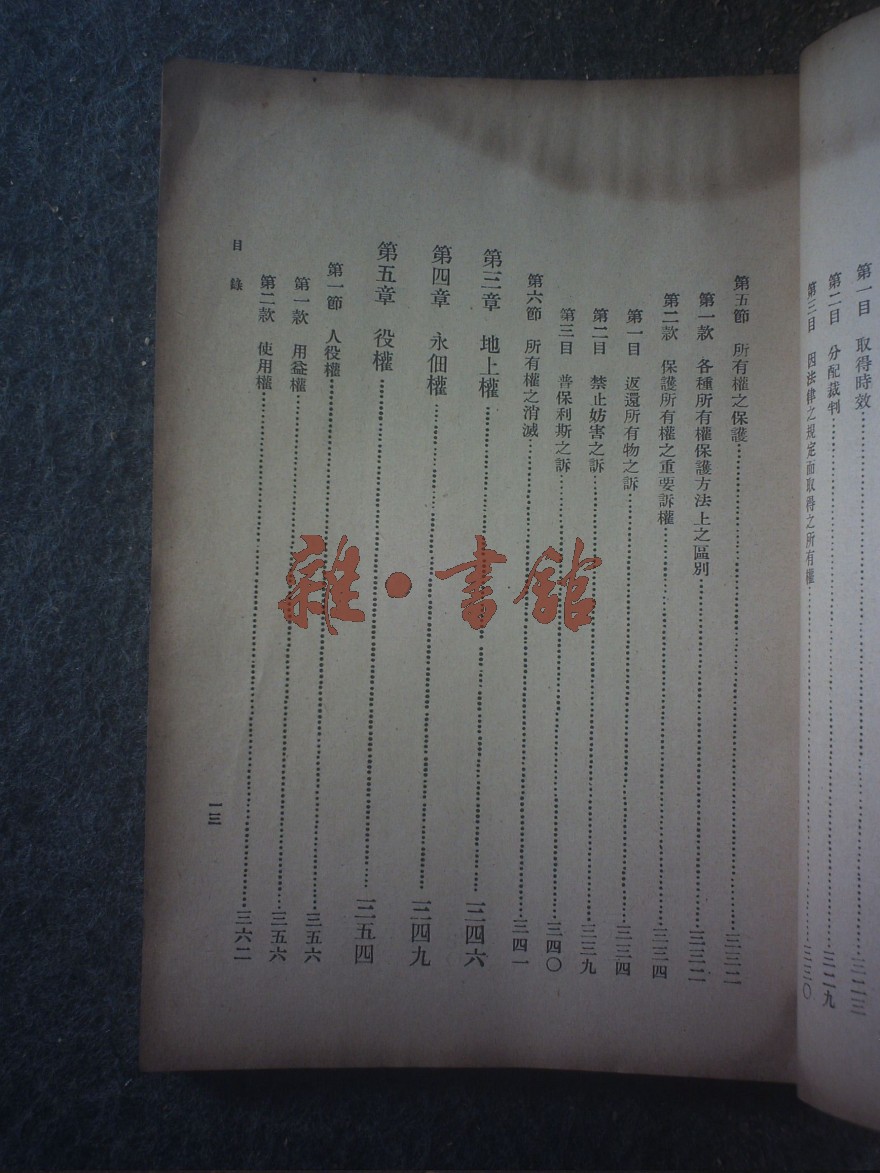 第一目 取得時效……三二三
第二目 分配裁判……三二九
第三目 因法律之規定而取得之所有權……三三〇
第五節 所有權之保護……三三二
第一款 各種所有權保護方法上之區別……三三二
第二款 保護所有權之重要訴權……三三四
第一目 返還所有物之訴……三三四
第二目 禁止妨害之訴……三三九
第三目 普保利斯之訴……三四〇
第六節 所有權之消滅……三四一
第三章 地上權……三四六
第四章 永佃權……三四九
第五章 役權……三五四
第一節 人役權……三五六
第一款 用益權……三五六
第二款 使用權……三六二
目錄
一三
雜·書館